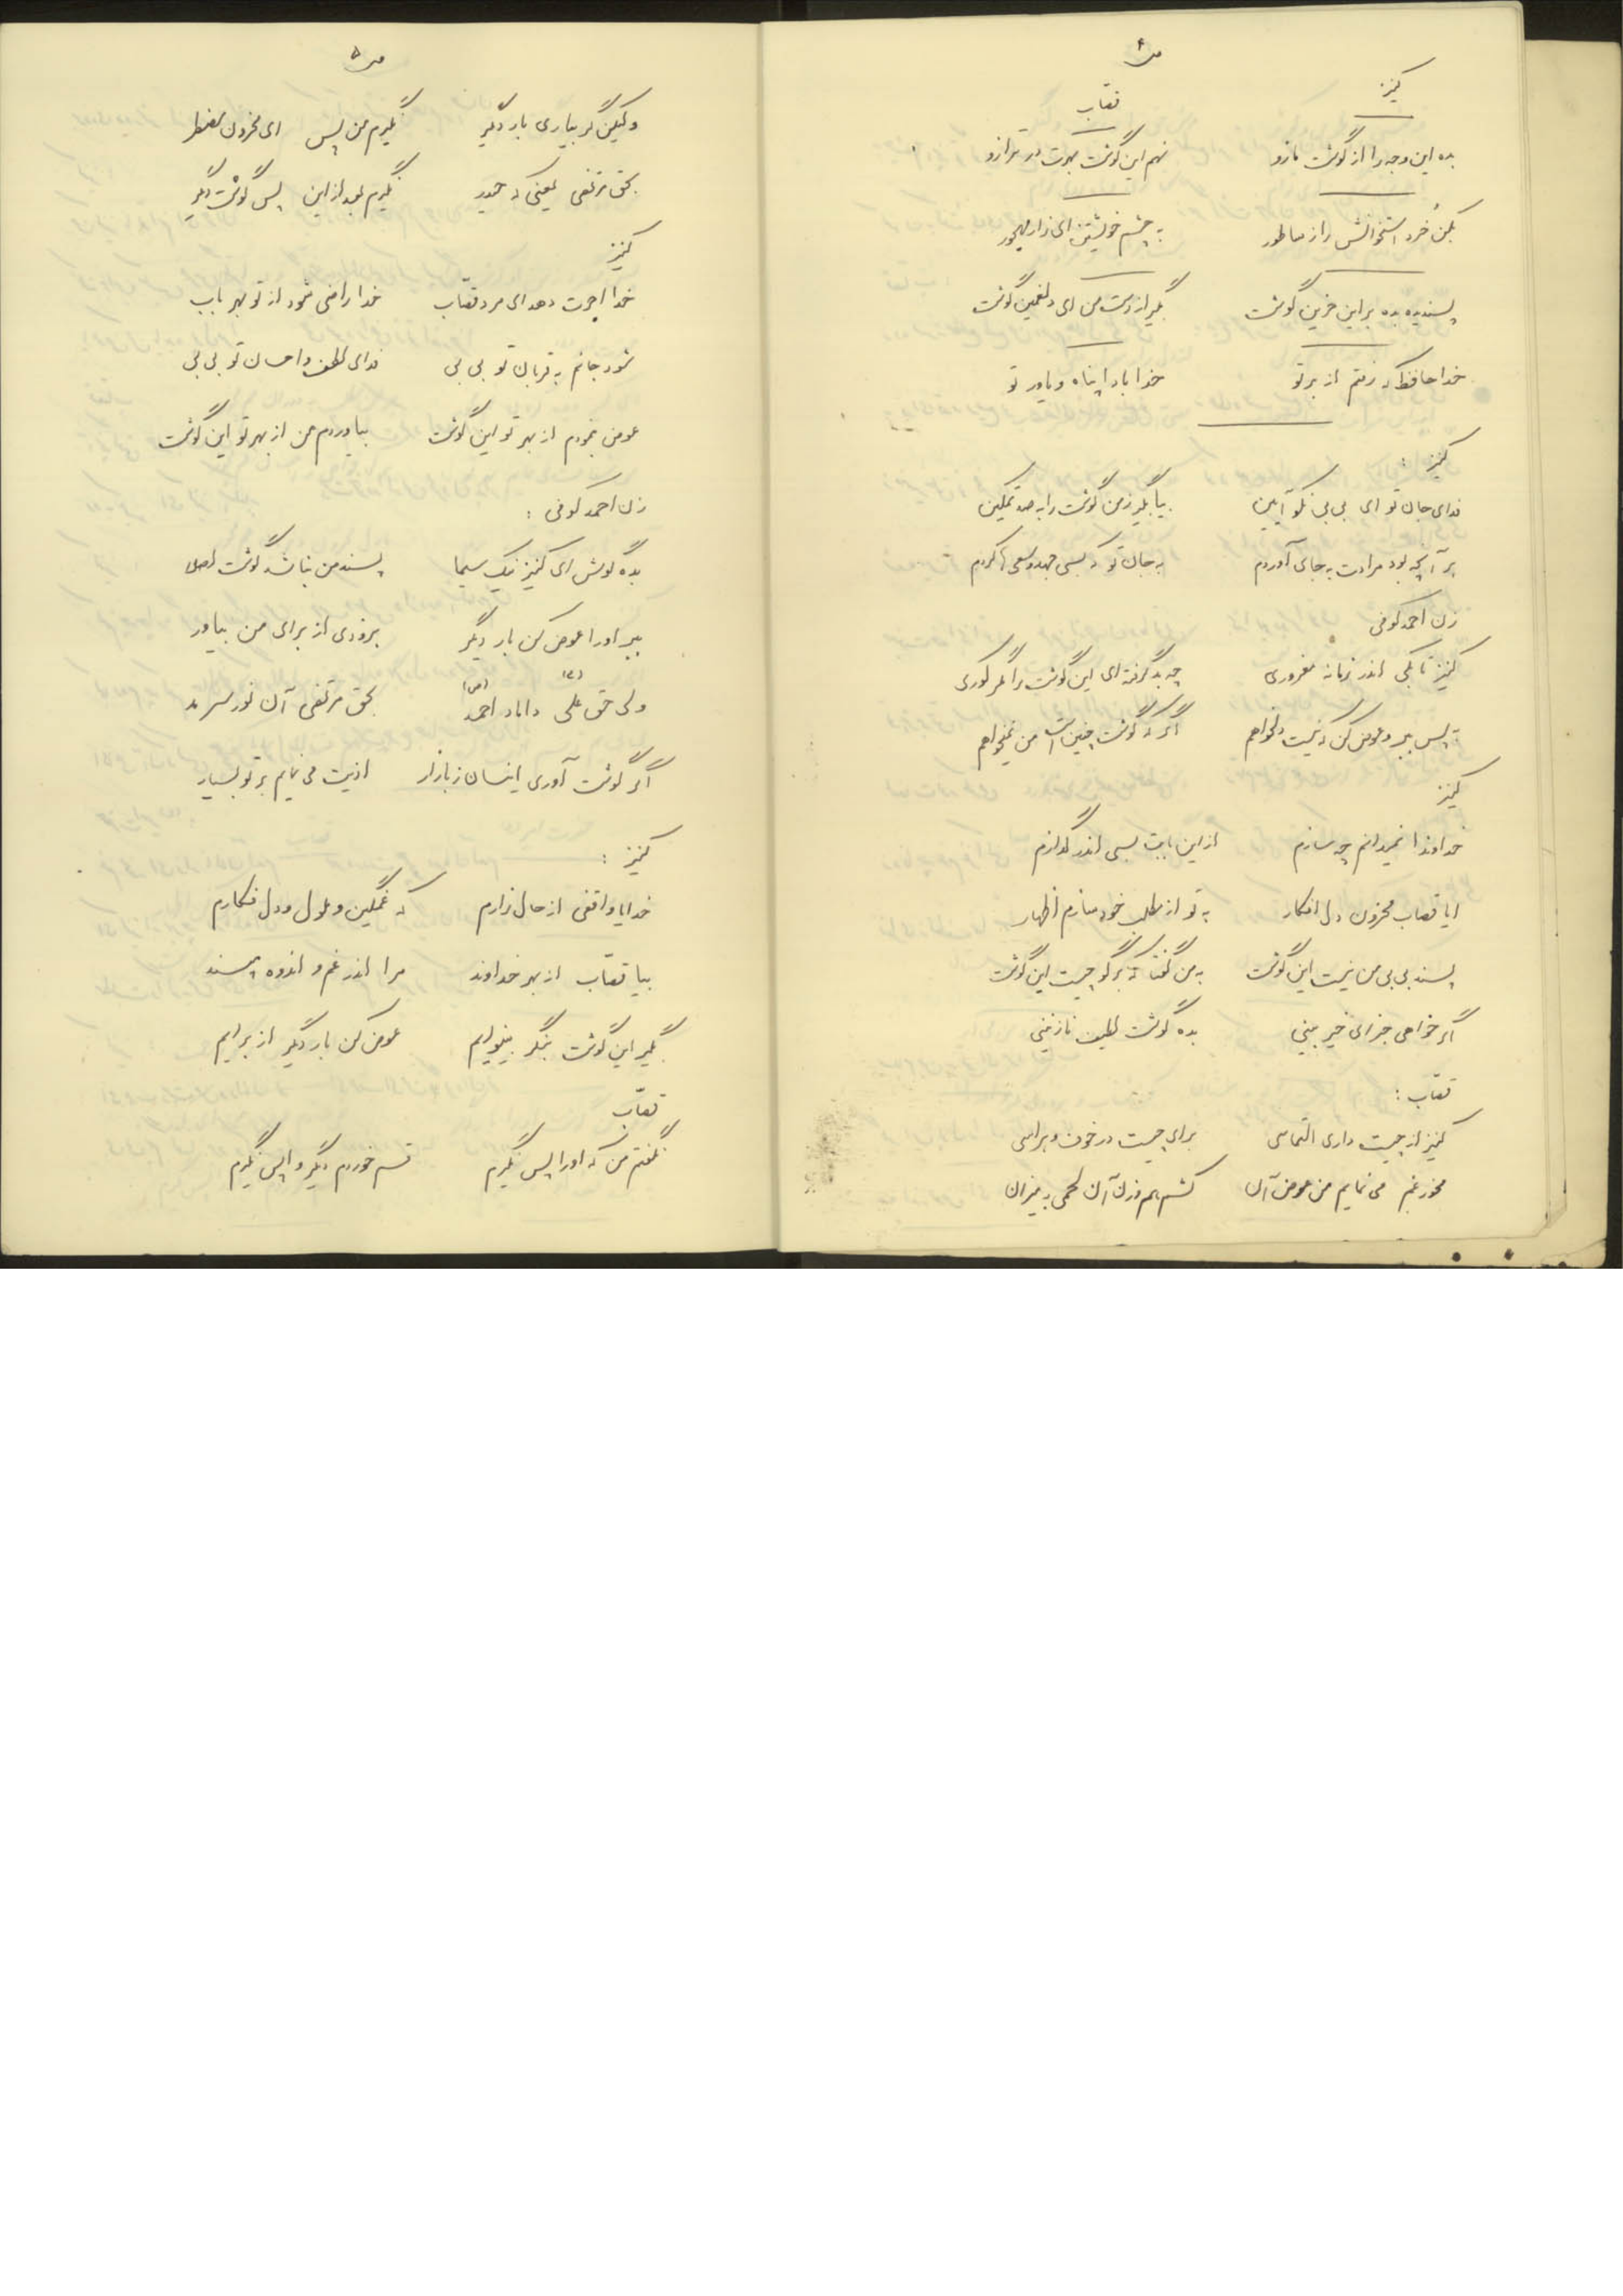 ص ۴
کنیز
قصاب
بده این وجه را از گوشت بازو نهم این گوشت بهرت در ترازو
بکن خُرد استخوانش را ز ساطور به چشم خویشتن ای زار مهجور
پسندیده بده بر این حزین گوشت بگیر از دست من ای دلغمین گوشت
خداحافظ که رفتم از بر تو خدا بادا پناه و یاور تو
کنیز :
فدای جان تو ای بی بی نکو آیین بیا بگیر ز من گوشت را به صد تمکین
هر آنچه بود مرادت به جای آوردم به جان تو که بسی جهد و سعی ها کردم
زن احمد کوفی
کنیز تا بکی اندر زمانه مغروری چه بد گرفته ای این گوشت را مگر کوری
پس ببر و عوض کن که نیست دلخواهم اگر که گوشت چنین است من نمیخواهم
کنیز
خداوندا نمیدانم چه سازم از این بابت بسی اندر گدازم
ایا قصاب محزون دل افکار به تو از مطلب خود سازم اظهار
پسند بی بی من نیست این گوشت به من گفتا که برگو چیست این گوشت
اگر خواهی جزای خیر بینی بده گوشت لطیف نازنینی
قصاب :
کنیز از چیست داری التماسی برای چیست در خوف و هراسی
مخور غم می نمایم من عوض آن کشم هم وزن آن لحمی به میزان
ص ۵
ولیکن گر بیاری بار دیگر نگیرم من پس ای محزون مضطر
بحق مرتضی یعنی که حیدر نگیرم بعد از این پس گوشت دیگر
کنیز
خدا اجرت دهد ای مرد قصاب خدا راضی شود از تو بهر باب
شود جانم به قربان تو بی بی فدای لطف و احسان تو بی بی
عوض نمودم از بهر تو این گوشت بیاوردم من از بهر تو این گوشت
زن احمد کوفی :
بده گوش ای کنیز نیک سیما پسند من نباشد گوشت اصلا
ببر او را عوض کن بار دیگر بزودی از برای من بیاور
ولی حق علی (ع) داماد احمد (ص) بحق مرتضی آن نور سرمد
اگر گوشت آوری اینسان ز بازار اذیت می نمایم بر تو بسیار
کنیز :
خدایا واقفی از حال زارم که غمگین و ملول و دل فکارم
بیا قصاب از بهر خداوند مرا اندر غم و اندوه مپسند
بگیر این گوشت بنگر بینوایم عوض کن بار دیگر از برایم
قصاب
بگفتم من که او را پس نگیرم قسم خوردم دیگر واپس نگیرم